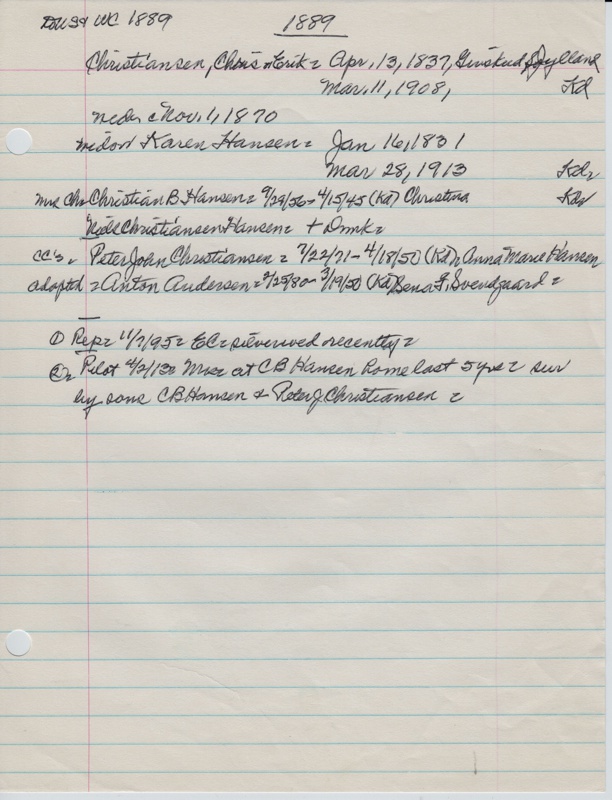 DUS4 WC 1889 1889
Christiansen, Chris Erik = Apr. 13, 1837, Givskud, Jylland
Mar. 11, 1908, Kd
wed = Nov. 1, 1870
widow Karen Hansen = Jan 16, 1831
Mar 28, 1913 Kd =
Mrs Chr = Christian B Hansen = 9/29/56 - 4/15/45 (Kd) Christina Kd
Niels Christiansen Hansen = + Dmk =
CC's = Peter John Christiansen = 7/22/71 - 4/18/50 (Kd) Anna Marie Hansen
adopted = Anton Andersen = 2/25/80 - 3/19/50 (Kd) Bena F. Svendgaard =
① Rep = 11/7/95 = EC = silverwed recently =
② = Pilot 4/2/13 = Mrs = at CB Hansen home last 5 yrs = sur
by sons CB Hansen & Peter J Christiansen =